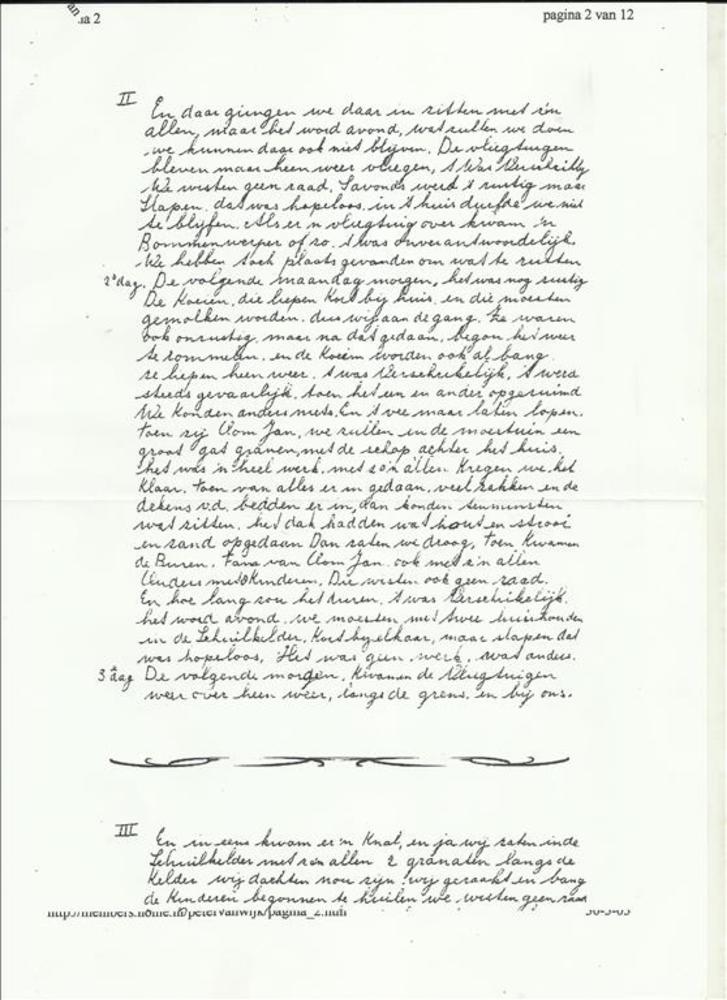 an
.ia 2
pagina 2 van 12
II
En daar gingen we daar in zitten met z'n
allen, maar het word avond, wat zullen we doen
we kunnen daar ook niet blijven. De vliegtuigen
bleven maar heen weer vliegen, t Was
We wisten geen raad, Savonds werd t rustig maar
slapen. dat was hopeloos. in t huis durfde we niet
te blijfen. Als er n vliegtuig over kwam 'n
Bommenwerper of zo. t was onverantwoordelijk.
We hebben toch plaats gevonden om wat te rusten
2e dag. De volgende maandag morgen, het was nog rustig
De Koeien, die liepen Kort bij huis. en die moesten
gemolken worden. dus wij aan de gang. Ze waren
ook onrustig, maar na dat gedaan, begon het weer
te rommelen. en de Koeien worden ook al bang.
ze liepen heen weer. t was Verschrikelijk, t werd
steeds gevaarlijk. toen het een en ander opgeruimd
We Konden anders niets. En t vee maar laten lopen.
toen zij Oom Jan, we zullen in de moestuin een
groot gat graven, met de schop achter het huis.
het was 'n heel werk. met z'n allen Kregen we het
Klaar. toen van alles er in gedaan, veel zakken en de
dekens v.d. bedden er in, dan konden tenminsten
wat zitten. het dak hadden wat hout en strooi
en zand opgedaan Dan zaten we droog, toen Kwamen
de Buren. Fam. van Oom Jan. ook met z'n allen
Ouders met 8 Kinderen, Die wisten ook geen raad.
En hoe lang zou het duren. t was Verschrikelijk.
het word avond. we moesten met twee huishouden
in de Schuilkelder, Kort by elkaar, maar slapen dat
was hopeloos, Het was geen werk. wat anders.
3e dag De volgende morgen, Kwamen de Vliegtuigen
weer over heen weer, langs de grens. en bij ons.
III
En in eens kwam er 'n Knal, en ja wij zaten in de
Schuilkelder met z'n allen 2 granaten langs de
Kelder wij dachten nou zijn wij geraakt en bang
de Kinderen begonnen te huilen we wisten geen raad
http://members.home.nl/petervanwijk/pagina_2.htm
30-5-05